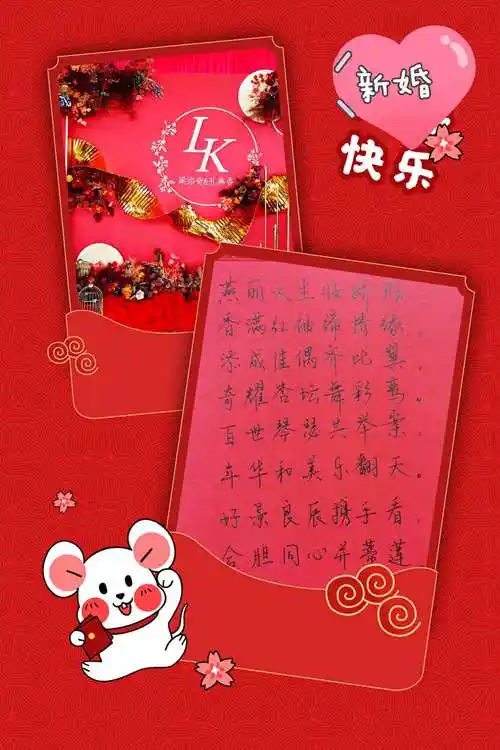 新婚
快乐
LK
燕丽天生妆娇
香满红袖缔情缘，
添成佳偶齐比翼，
奇耀杏坛舞彩鸾。
百世琴瑟共举案，
年华和美乐翻天。
好景良辰携手看，
合胆同心并蒂莲